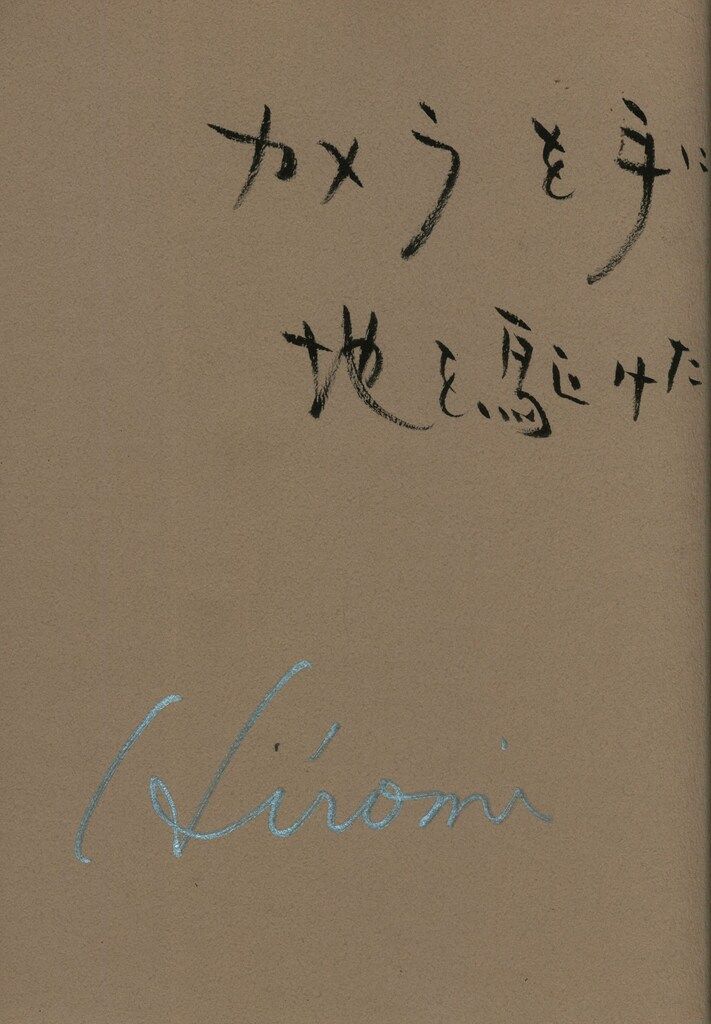 カメラを手に
地を駆けた
Hiromi